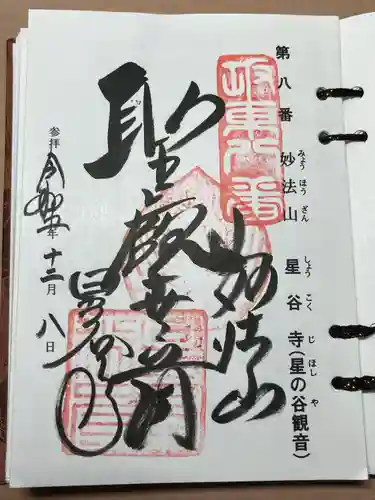 第八番 妙法山 星谷寺(星の谷観音)
みょう ほう ざん しょう こく じ ほし や
坂東八番
妙法山
聖観世音
星谷寺
参拝 令和五年 十二月 八日